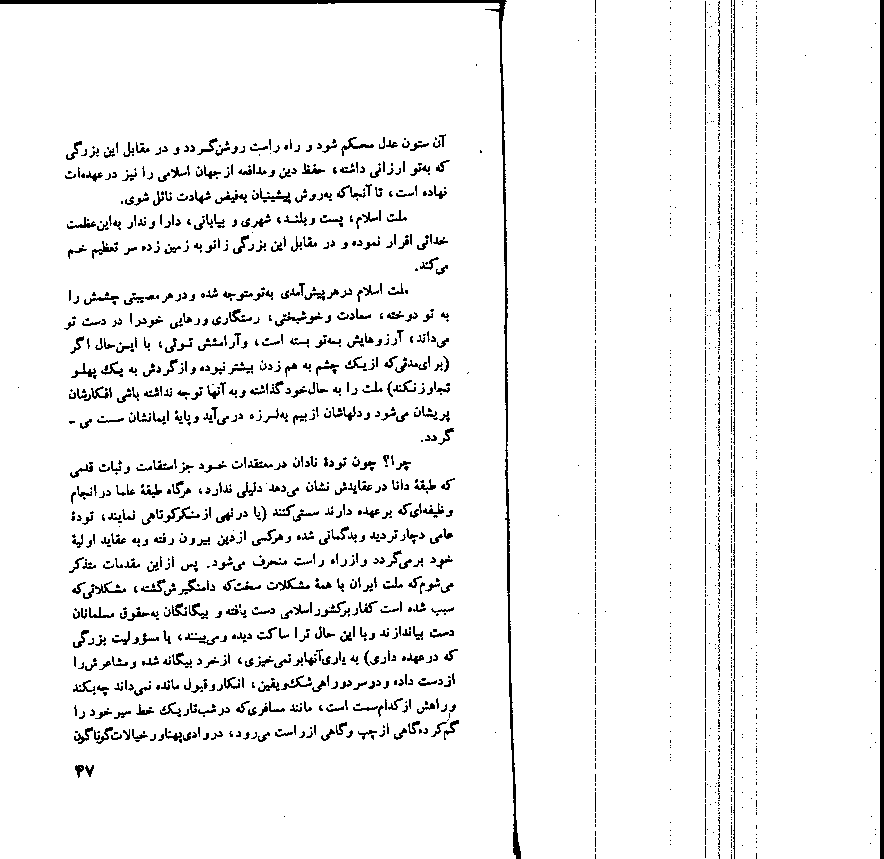 آن ستون عدل محکم شود و راه راست روشن‌گردد و در مقابل این بزرگی
که به‌تو ارزانی داشته، حفظ دین و مدافعه از جهان اسلامی را نیز در عهده‌ات
نهاده است، تا آنجا‌که به‌روش پیشینیان به‌فیض شهادت نائل شوی.
ملت اسلام، پست و بلند، شهری و بیابانی، دارا و ندار به‌این‌عظمت
خدائی اقرار نموده و در مقابل این بزرگی زانو به زمین زده سر تعظیم خم
می‌کند.
ملت اسلام در هر پیش‌آمدی به‌تو متوجه شده و در هر مصیبتی چشمش را
به تو دوخته، سعادت و خوشبختی، رستگاری و رهایی خود را در دست تو
می‌داند، آرزوهایش به‌تو بسته است، و آرامشش توئی، با این‌حال اگر
(برای‌مدتی‌که از یک چشم به هم زدن بیشتر نبوده و از گردش به یک پهلو
تجاوز نکند) ملت را به حال‌خود گذاشته و به آنها توجه نداشته باشی افکارشان
پریشان می‌شود و دلهاشان از بیم به‌لرزه در می‌آید و پایهٔ ایمانشان سست می -
گردد.
چرا؟ چون تودهٔ نادان در معتقدات خود جز استقامت و ثبات قدمی
که طبقهٔ دانا در عقایدش نشان می‌دهد دلیلی ندارد، هرگاه طبقهٔ علما در انجام
وظیفه‌ای‌که بر عهده دارند سستی‌کنند (یا در نهی از منکر کوتاهی نمایند، تودهٔ
عامی دچار تردید و بدگمانی شده و هرکسی از دین بیرون رفته و به عقاید اولیهٔ
خود بر می‌گردد و از راه راست منحرف می‌شود. پس از این مقدمات متذکر
می‌شوم‌که ملت ایران با همهٔ مشکلات سخت‌که دامنگیرش‌گشته، مشکلاتی‌که
سبب شده است کفار بر کشور اسلامی دست یافته و بیگانگان به‌حقوق مسلمانان
دست بیاندازند و با این حال ترا ساکت دیده و می‌بینند، با مسؤولیت بزرگی
که در عهده داری) به یاری‌آنها بر نمی‌خیزی، از خرد بیگانه شده و مشاعرش را
از دست داده و در سر دو راهی‌شک‌و‌یقین، انکار و قبول مانده نمی‌داند چه‌بکند
و راهش از کدام‌سمت است، مانند مسافری‌که در شب‌تاریک خط سیر خود را
گم‌کرده‌گاهی از چپ و گاهی از راست می‌رود، در وادی‌پهناور خیالات‌گوناگون
۴۷